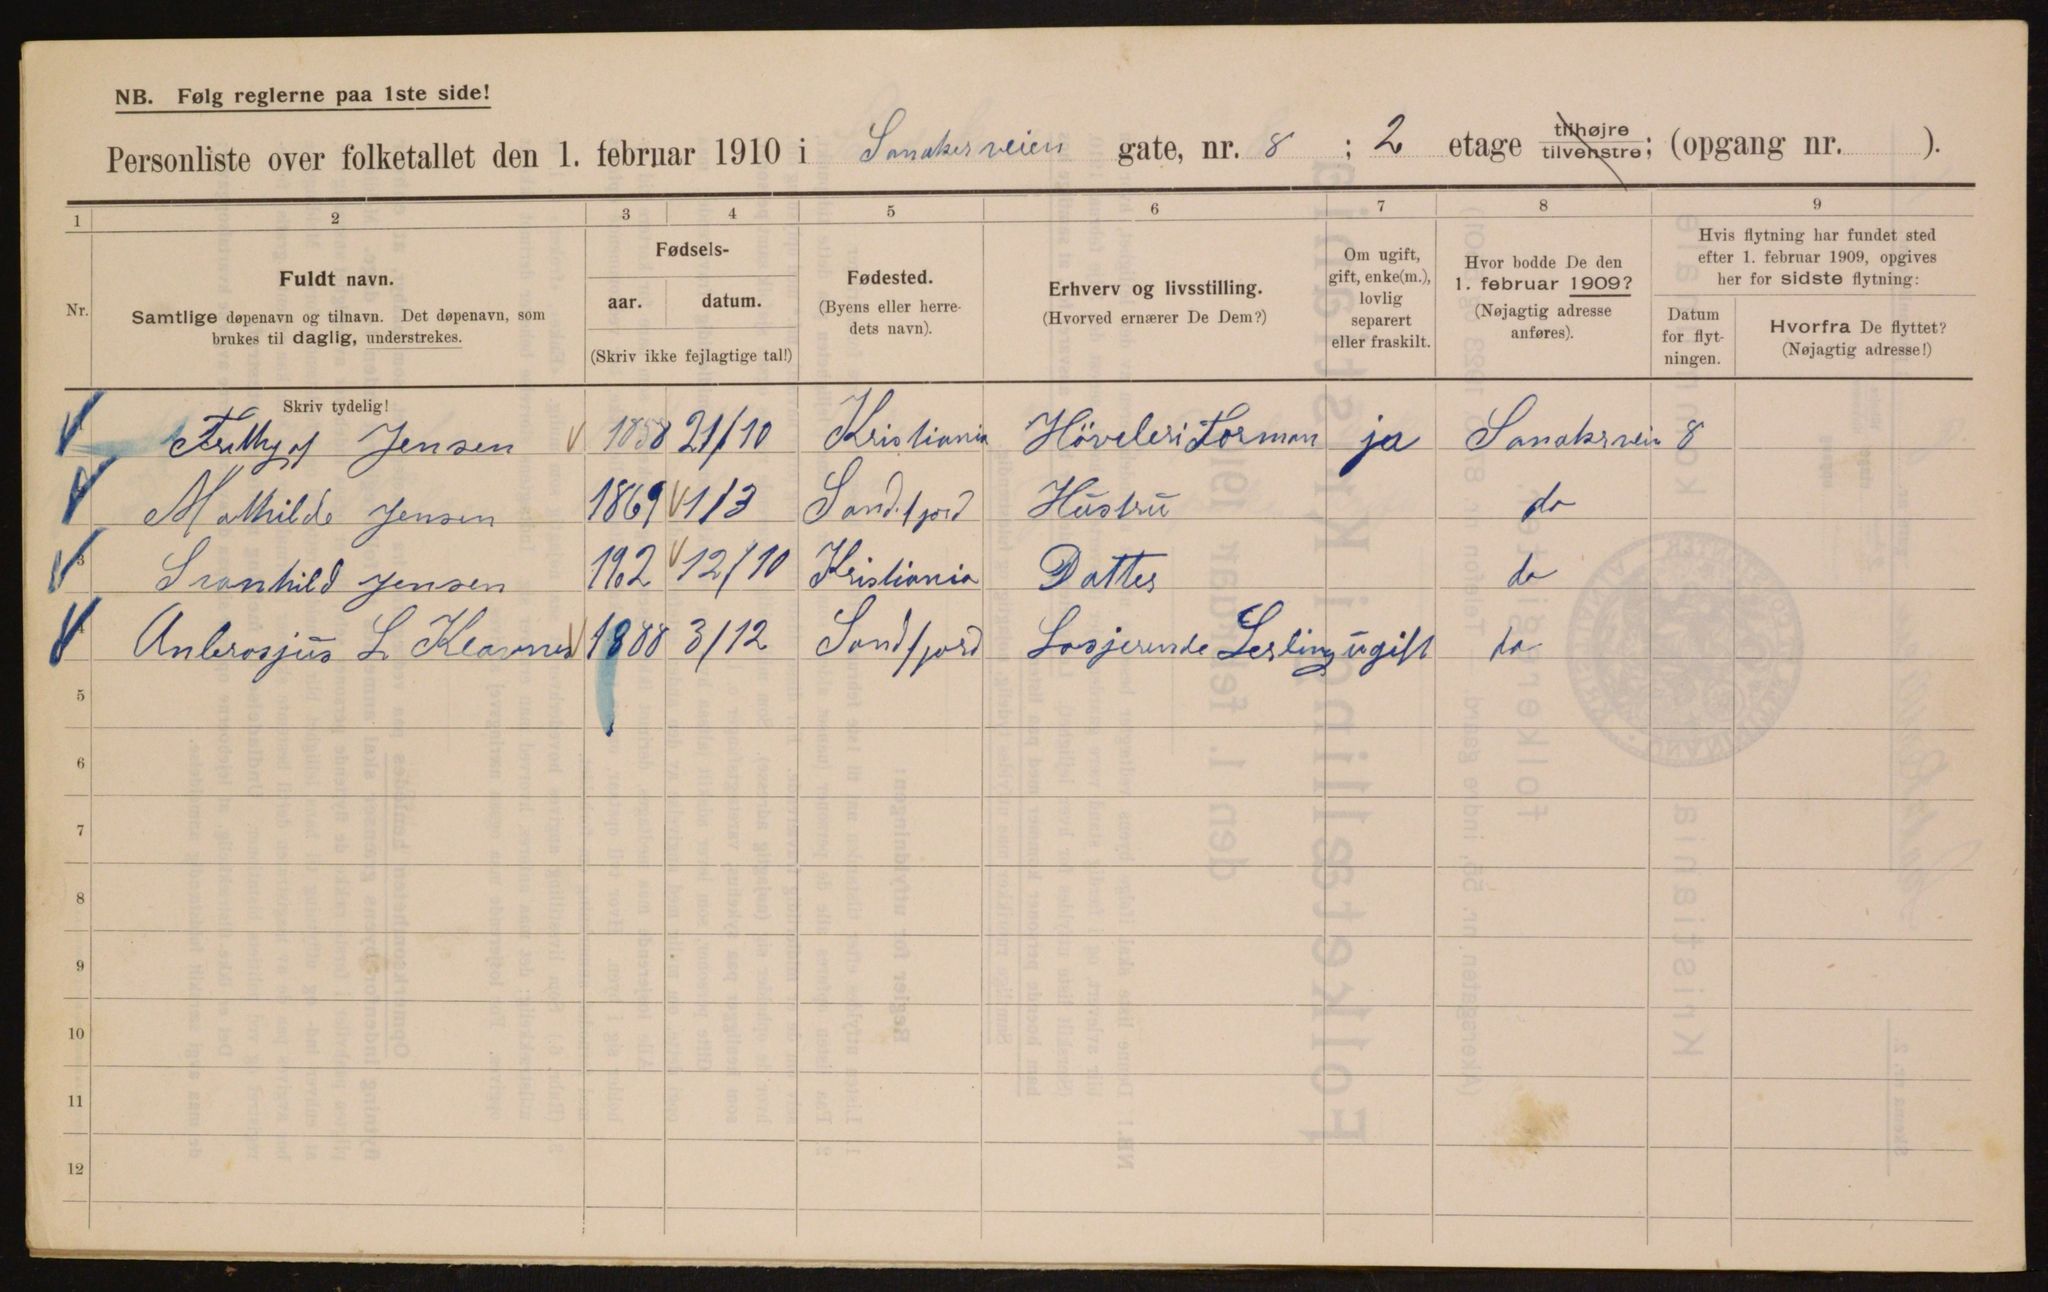 NB. Følg reglerne paa 1ste side!
Personliste over folketallet den 1. februar 1910 i Sanakerveien gate, nr. 8 ; 2 etage tilhøjre tilvenstre; (opgang nr. ).
1 2 3 4 5 6 7 8 9
Nr.
Fuldt navn.
Samtlige døpenavn og tilnavn. Det døpenavn, som
brukes til daglig, understrekes.
Fødsels-
aar. datum.
(Skriv ikke fejlagtige tal!)
Fødested.
(Byens eller herre-
dets navn).
Erhverv og livsstilling.
(Hvorved ernærer De Dem?)
Om ugift,
gift, enke(m.),
lovlig
separert
eller fraskilt.
Hvor bodde De den
1. februar 1909?
(Nøjagtig adresse
anføres).
Hvis flytning har fundet sted
efter 1. februar 1909, opgives
her for sidste flytning:
Datum
for flyt-
ningen.
Hvorfra De flyttet?
(Nøjagtig adresse!)
Skriv tydelig!
Jensen 1858 21/10 Kristiania Höveleri Forman ja Sanakrvein 8
Mathilde Jensen 1869 1/3 Sandefjord Hustru do
3 Svanhild Jensen 1902 12/10 Kristiania Datter do
4 Anbrosjus L Klavnes 1888 3/12 Sandfjord Losjerende Lerling ugift do
5
6
7
8
9
10
11
12